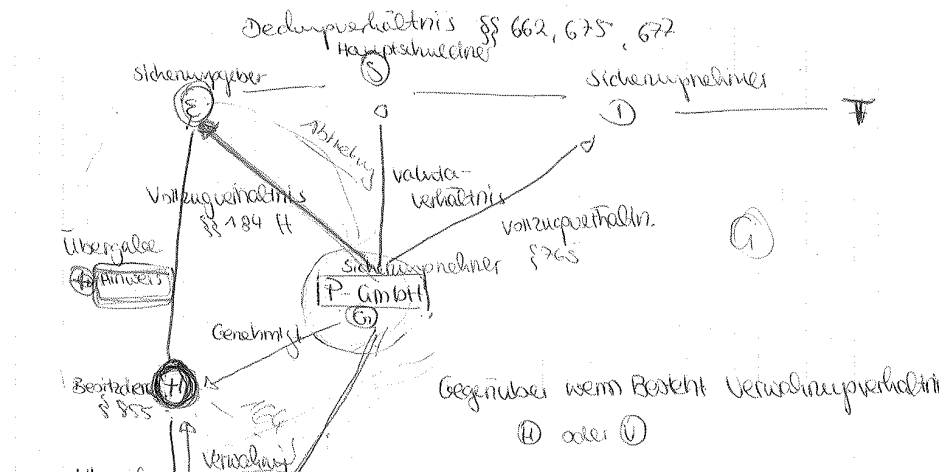 Deckungsverhältnis §§ 662, 675, 677
Hauptschuldner
Sicherungsgeber
S
Sicherungsnehmer
E
D
T
Abtretung
Valuta-
verhältnis
Vollzugverhältnis
§§ 184 ff
Vollzugverhältn.
§ 765
G
Übergabe
+ Hinweis
Sicherungsnehmer
P-GmbH
G
Genehmigt
Besitzdiener
§ 855
H
164
Gegenüber wem Besteht Verwahrungsverhältni
H oder V
Verwahrung